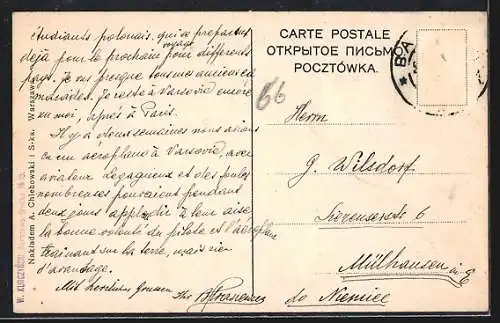 étudiants polonais, qui se preparent
déjà pour le prochain voyage pour différents
pays. Je vis presque tous mes anciens ca-
marades. Je reste à Varsovie encore
un moi, après à Paris.
Il y a deux semaines nous avions
eu un aéroplane à Varsovie, avec
aviateur Legagneux et des foules
nombreuses pouvaient pendant
deux jours applaudir à leur aise
la bonne volonté du pilote et l'aéroplane
trainant sur la terre, mais rien
d'avantage.
Mit herzlichen Grüssen Ihr
W. KURCZYŃSKI
Nakładem A. Chlebowski i S-ka. Warszawa
CARTE POSTALE
ОТКРЫТОЕ ПИСЬМО
POCZTÓWKA.
ВА
66
Herrn
G. Wilsdorf
6
Mülhausen in E
do Niemiec